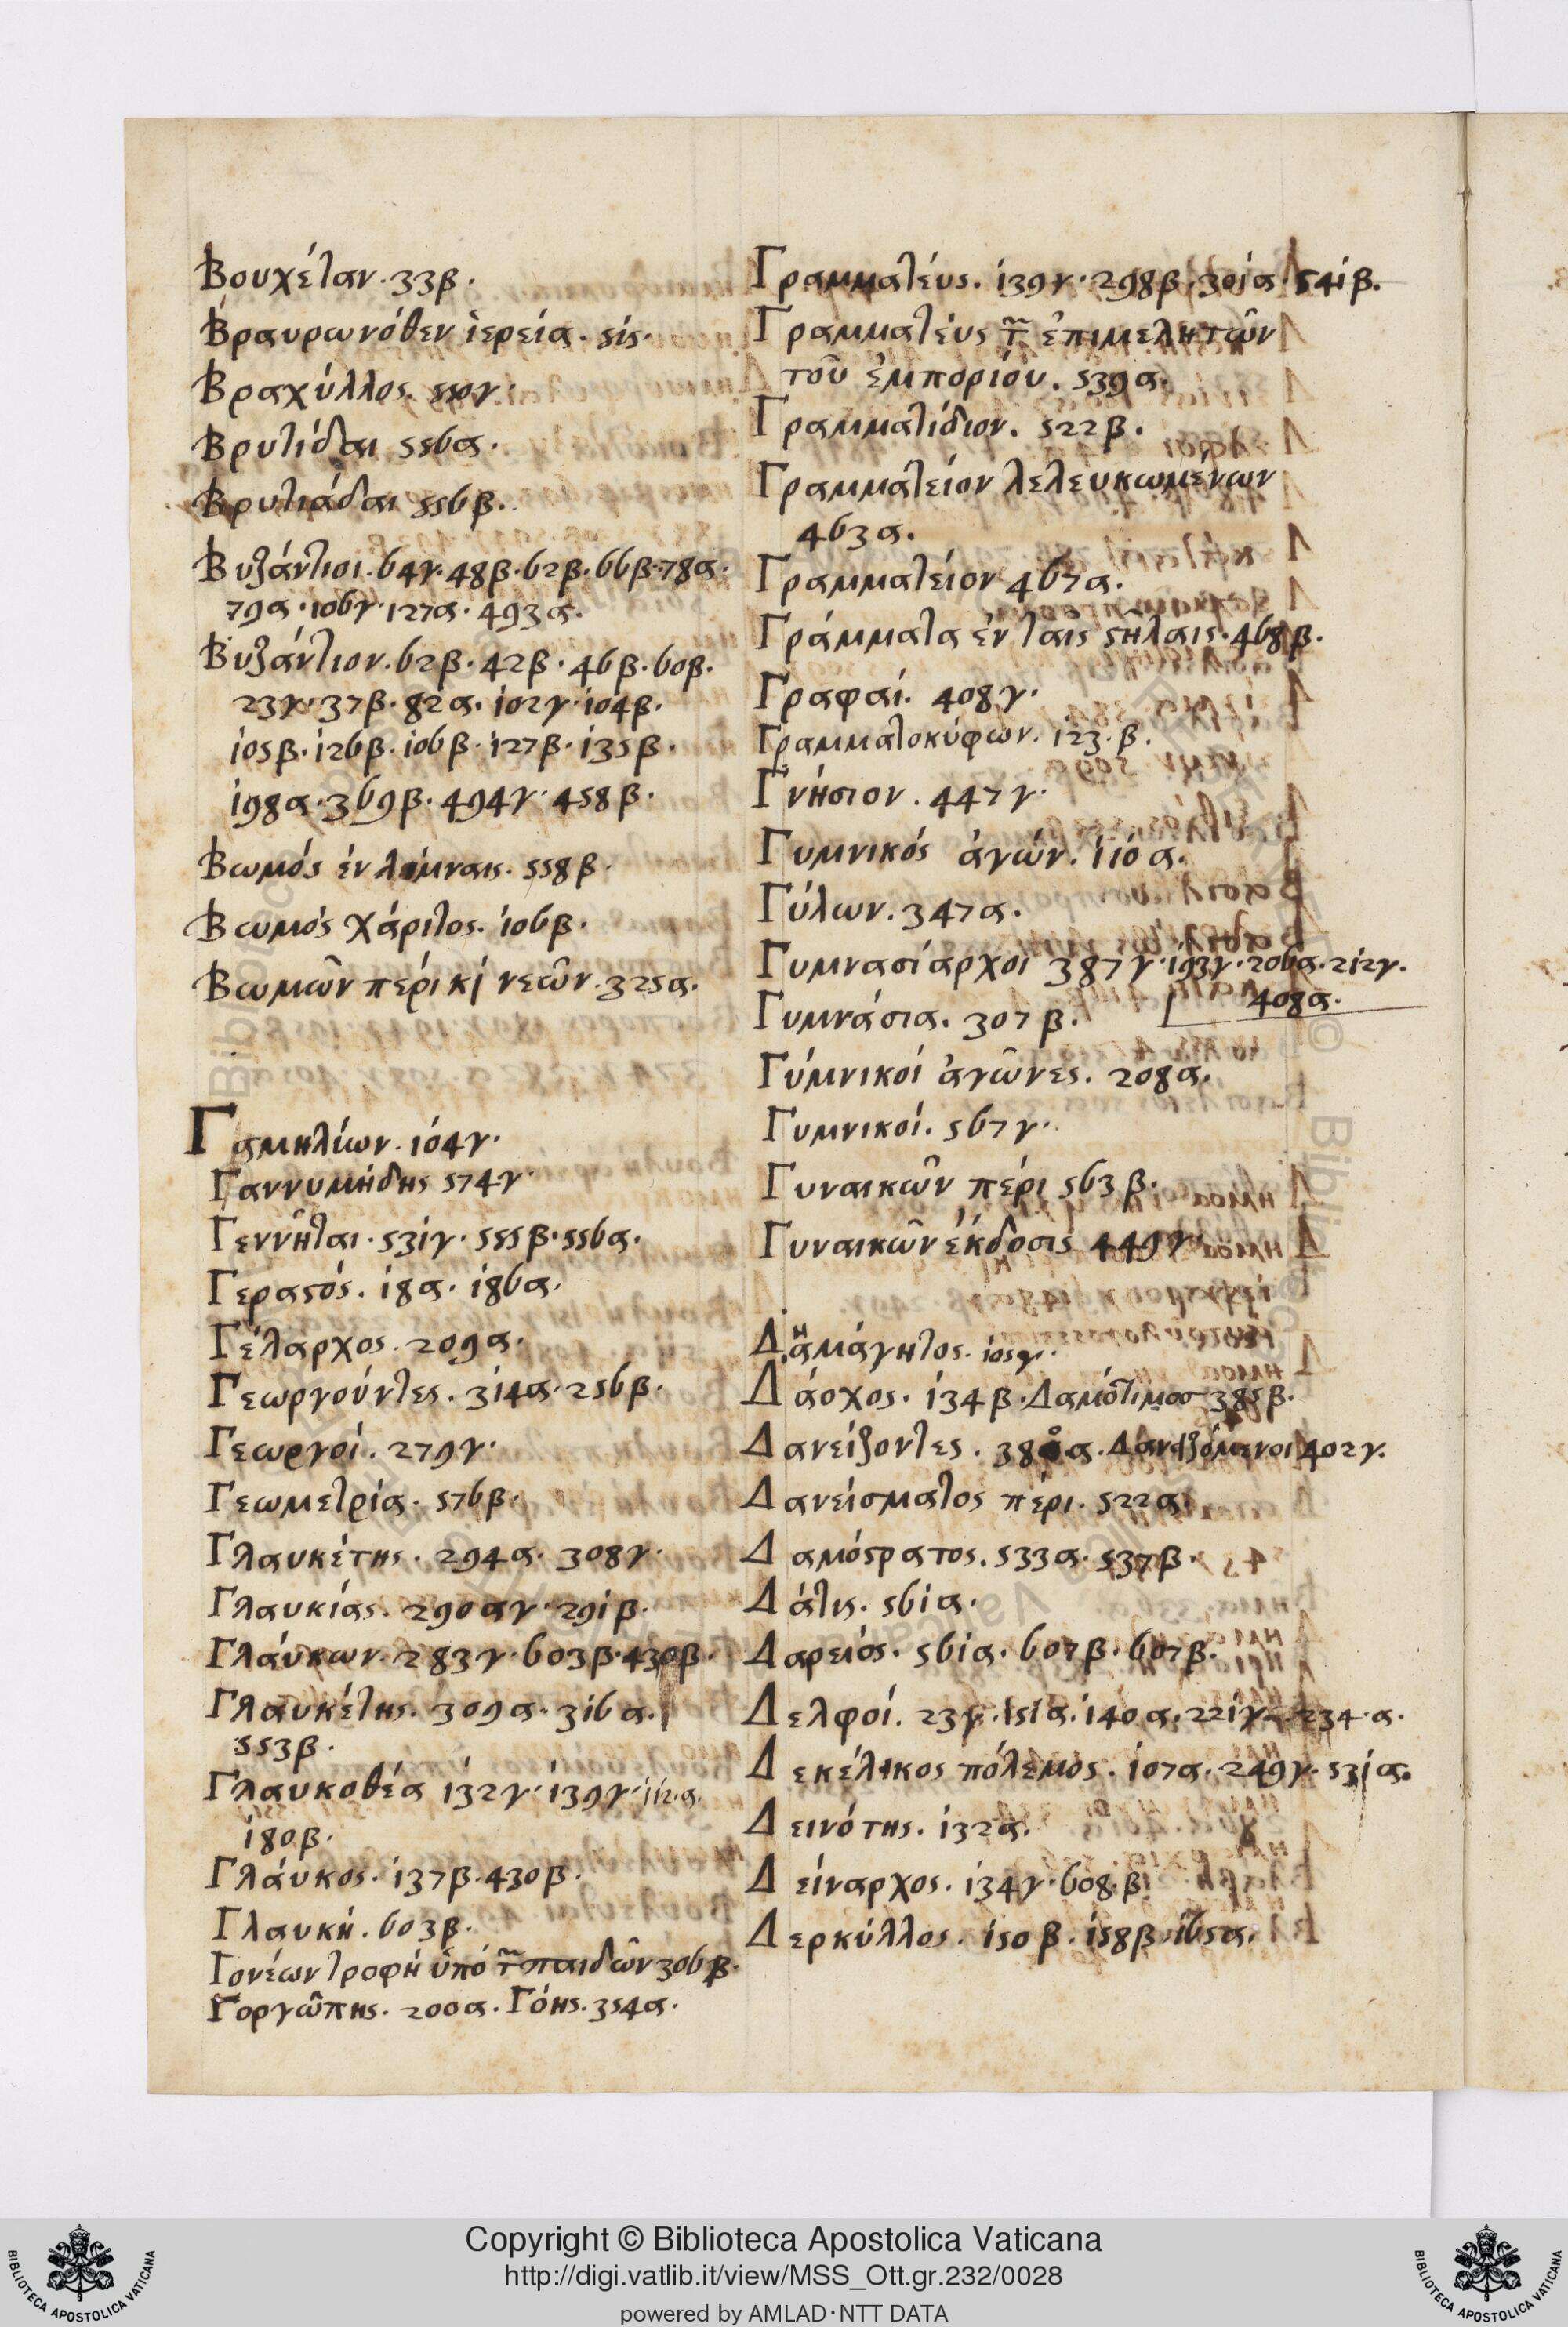 Βουχέταν. 33β.
Βραυρωνόθεν ἱερεία. 515.
Βραχύλλος. 550γ.
Βρυτίδαι 556α.
Βρυτιάδαι 556β.
Βυζάντιοι. 64γ. 48β. 62β. 66β. 78α.
79α. 106γ. 127α. 493α.
Βυζάντιον. 62β. 42β. 46β. 60β.
23γ. 37β. 82α. 102γ. 104β.
105β. 126β. 106β. 127β. 135β.
198α. 369β. 494γ. 458β.
Βωμός ἐν λίμναις. 558β.
Βωμός χάριτος. 106β.
Βωμῶν πέρι κὶ νεῶν. 325α.
Γαμηλίων. 104γ.
Γαννυμήδης 574γ.
Γεννῆται. 531γ. 555β. 556α.
Γεραςός. 18α. 186α.
Γέλαρχος. 209α.
Γεωργούντες. 314α. 256β.
Γεωργοί. 279γ.
Γεωμετρία. 576β.
Γλαυκέτης. 294α. 308γ.
Γλαυκίας. 290αγ. 291β.
Γλάυκων. 283γ. 603β. 430β.
Γλαυκέτης. 309α. 316α.
553β.
Γλαυκοθέα 132γ. 139γ. 112.α.
180β.
Γλάυκος. 137β. 430β.
Γλαυκή. 603β.
Γονέων τροφή ὑπό τ̃ παιδῶν 306β.
Γοργῶπης. 200α. Γόης. 354α.
Γραμματέυς. 139γ. 298β. 301α. 541β.
Γραμματέυς τ̃ ἐπιμελητῶν
τοῦ ἐμπορίου. 539α.
Γραμματίδιον. 522β.
Γραμμάτειον λελευκωμένων
463α.
Γραμματείον 467α.
Γράμματα ἐν ταῖς ςήλαις. 468β.
Γραφαί. 408γ.
Γραμματοκύφων. 123.β.
Γνήσιον. 447γ.
Γυμνικός ἀγών. 110α.
Γύλων. 347α.
Γυμνασίαρχοι 387γ. 193γ. 206α. 212γ.
408α.
Γυμνάσια. 307β.
Γύμνικοί ἀγῶνες. 208α.
Γυμνικοί. 567γ.
Γυναικῶν πέρι 563β.
Γυναικῶν ἐκδοσις 449γ.
Δαμάγητος. 105γ.
Δάοχος. 134β. Δαμότιμοσ 385β.
Δανείζοντες. 380α. Δανειζόμενοι 402γ.
Δανείσματος πέρι. 522α.
Δαμόςρατος. 533α. 537β.
Δάτις. 561α.
Δαρειός. 561α. 607β. 607β.
Δελφοί. 23γ. 151α. 140α. 221γ. 234.α.
Δεκέλικος πόλεμος. 107α. 249γ. 531α.
Δεινότης. 132α.
Δείναρχος. 134γ. 608.β.
Δερκύλλος. 150β. 158β. 165α.
Copyright © Biblioteca Apostolica Vaticana
http://digi.vatlib.it/view/MSS_Ott.gr.232/0028
powered by AMLAD · NTT DATA
BIBLIOTECA APOSTOLICA VATICANA
BIBLIOTECA APOSTOLICA VATICANA